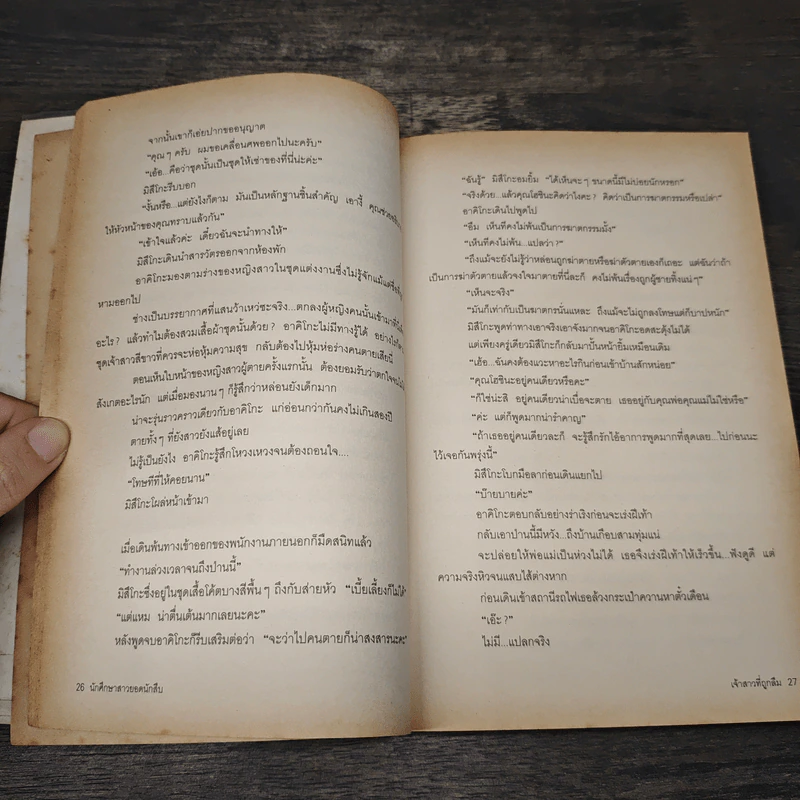 จากนั้นเขาก็เอ่ยปากขออนุญาต
“คุณๆ ครับ ผมขอเคลื่อนศพออกไปนะครับ”
“เอ้อ...คือว่าชุดนั้นเป็นชุดให้เช่าของที่นี่น่ะค่ะ”
มิสึโกะรีบบอก
“งั้นหรือ...แต่ยังไงก็ตาม มันเป็นหลักฐานชิ้นสำคัญ เอางี้ คุณช่วย
ให้หัวหน้าของคุณทราบแล้วกัน”
“เข้าใจแล้วค่ะ เดี๋ยวฉันจะนำทางให้”
มิสึโกะเดินนำสารวัตรออกจากห้องพัก
อาคิโกะมองตามร่างของหญิงสาวในชุดแต่งงานซึ่งไม่รู้จักแม้แต่ชื่อ
หามออกไป
ช่างเป็นบรรยากาศที่แสนว้าเหว่ซะจริง...ตกลงผู้หญิงคนนั้นเข้ามาที่นี่
อะไร? แล้วทำไมต้องสวมเสื้อผ้าชุดนั้นด้วย? อาคิโกะไม่มีทางรู้ได้ อย่างไรก็ตาม
ชุดเจ้าสาวสีขาวที่ควรจะห่อหุ้มความสุข กลับต้องไปหุ้มห่อร่างคนตายเสียนี่
ตอนเห็นใบหน้าของหญิงสาวผู้ตายครั้งแรกนั้น ต้องยอมรับว่าตกใจจน
สังเกตอะไรนัก แต่เมื่อมองนานๆ ก็รู้สึกว่าหล่อนยังเด็กมาก
น่าจะรุ่นราวคราวเดียวกับอาคิโกะ แก่อ่อนกว่ากันคงไม่เกินสองปี
ตายทั้งๆ ที่ยังสาวยังแส้อยู่เลย
ไม่รู้เป็นยังไง อาคิโกะรู้สึกโหวงเหวงจนต้องถอนใจ....
“โทษทีที่ให้คอยนาน”
มิสึโกะโผล่หน้าเข้ามา
เมื่อเดินพ้นทางเข้าออกของพนักงานภายนอกก็มืดสนิทแล้ว
“ทำงานล่วงเวลาจนถึงป่านนี้”
มิสึโกะซึ่งอยู่ในชุดเสื้อโค้ตบางสีพื้นๆ ถึงกับส่ายหัว “เบี้ยเลี้ยงก็ไม่ได้”
“แต่แหม น่าตื่นเต้นมากเลยนะคะ”
หลังพูดจบอาคิโกะก็รีบเสริมต่อว่า “จะว่าไปคนตายก็น่าสงสารนะคะ”
26 นักศึกษาสาวยอดนักสืบ
“ฉันรู้” มิสึโกะอมยิ้ม “ได้เห็นจะๆ ขนาดนี้มีไม่บ่อยนักหรอก”
“จริงด้วย...แล้วคุณโฮชินะคิดว่าไงคะ? คิดว่าเป็นการฆาตกรรมหรือเปล่า”
อาคิโกะเดินไปพูดไป
“อืม เห็นทีคงไม่พ้นการฆาตกรรมมั้ง”
“เห็นทีคงไม่พ้น...แปลว่า?”
“ถึงแม้จะยังไม่รู้ว่าหล่อนถูกฆ่าตายหรือฆ่าตัวตายเองก็เถอะ แต่ฉันว่าถ้า
เป็นการฆ่าตัวตายแล้วจงใจมาตายที่นี่ละก็ คงไม่พ้นเรื่องถูกผู้ชายทิ้งแน่ๆ”
“เห็นจะจริง”
“มันก็เท่ากับเป็นฆาตกรนั่นแหละ ถึงแม้จะไม่ถูกลงโทษแต่ก็บาปหนัก”
มิสึโกะพูดท่าทางเอาจริงเอาจังมากจนอาคิโกะอดสะดุ้งไม่ได้
แต่เพียงครู่เดียวมิสึโกะก็กลับมาปั้นหน้ายิ้มเหมือนเดิม
“เฮ้อ...ฉันคงต้องแวะหาอะไรกินก่อนเข้าบ้านสักหน่อย”
“คุณโฮชินะอยู่คนเดียวหรือคะ”
“ก็ใช่น่ะสิ อยู่คนเดียวน่าเบื่อจะตาย เธออยู่กับคุณพ่อคุณแม่ไม่ใช่หรือ”
“ค่ะ แต่ก็พูดมากน่ารำคาญ”
“ถ้าเธออยู่คนเดียวละก็ จะรู้สึกรักไอ้อาการพูดมากที่สุดเลย...ไปก่อนนะ
ไว้เจอกันพรุ่งนี้”
มิสึโกะโบกมือลาก่อนเดินแยกไป
“บ๊ายบายค่ะ”
อาคิโกะตอบกลับอย่างร่าเริงก่อนจะเร่งฝีเท้า
กลับเอาป่านนี้มีหวัง...ถึงบ้านเกือบสามทุ่มแน่
จะปล่อยให้พ่อแม่เป็นห่วงไม่ได้ เธอจึงเร่งฝีเท้าให้เร็วขึ้น...ฟังดูดี แต่
ความจริงหิวจนแสบไส้ต่างหาก
ก่อนเดินเข้าสถานีรถไฟเธอล้วงกระเป๋าควานหาตั๋วเดือน
“เอ๊ะ?”
ไม่มี...แปลกจริง
เจ้าสาวที่ถูกลืม 27